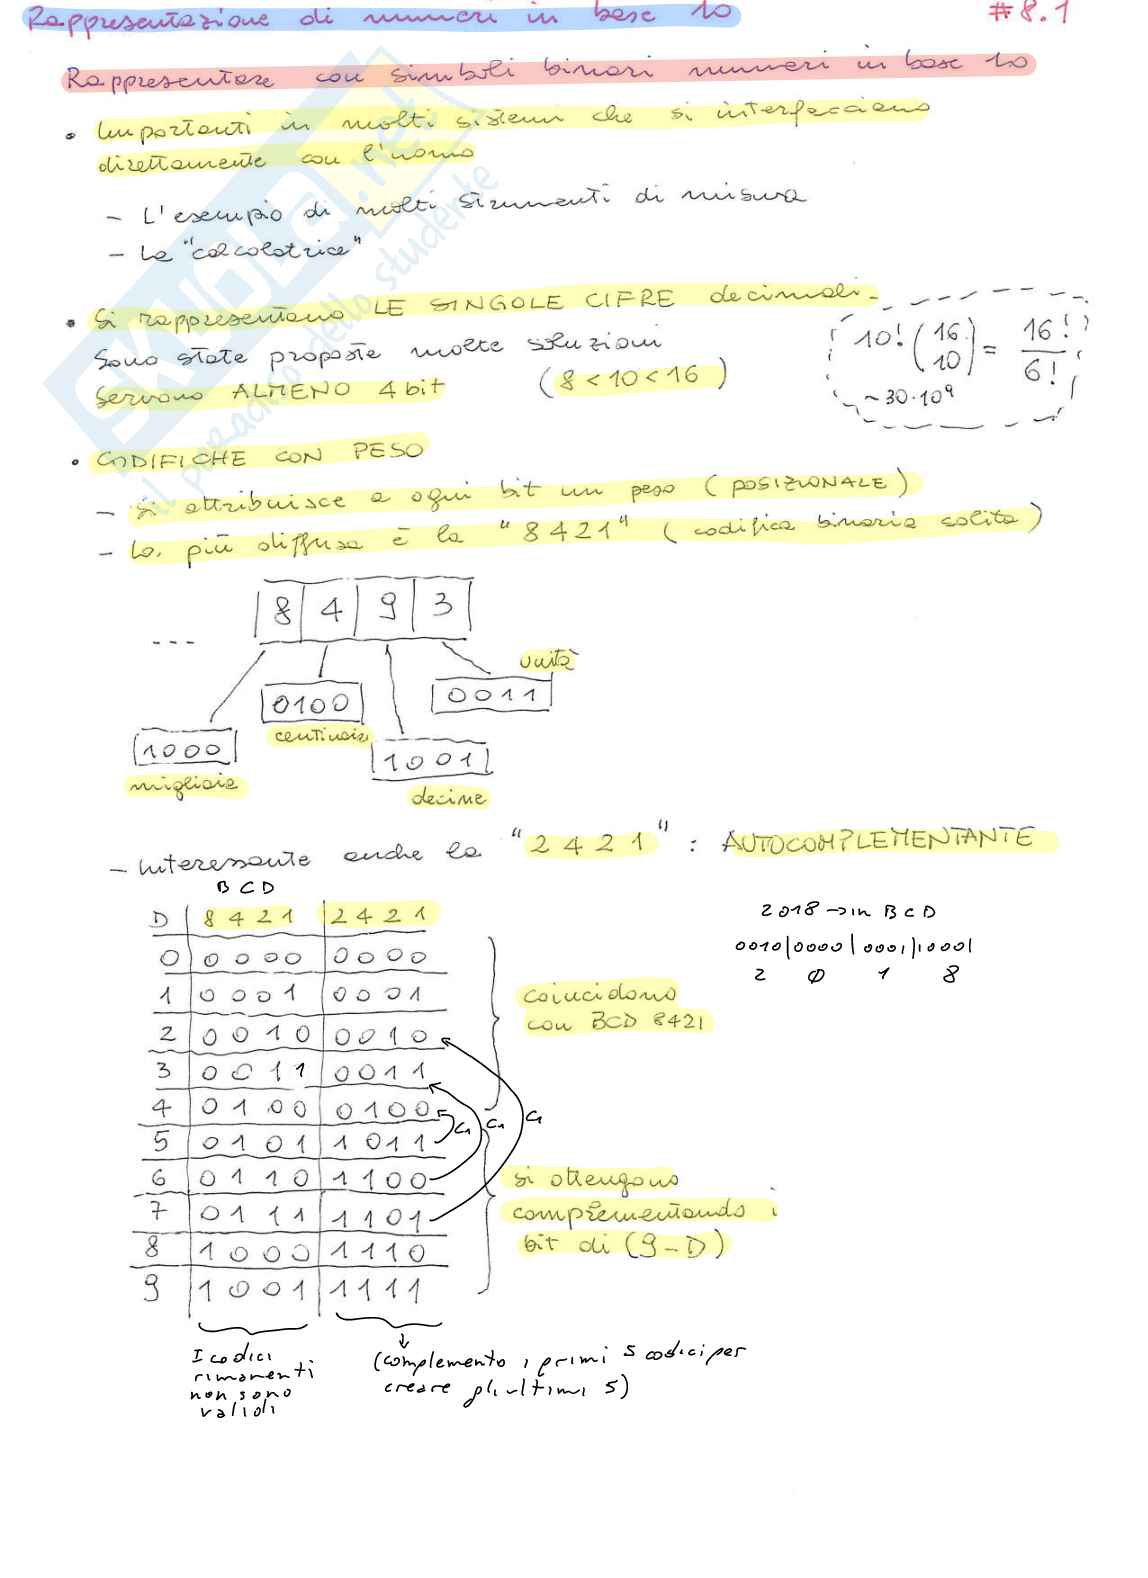 Rappresentazione di numeri in base 10 #8.1
Rappresentare con simboli binari numeri in base 10
• Importanti in molti sistemi che si interfacciano
direttamente con l'uomo
- L'esempio di molti strumenti di misura
- La "calcolatrice"
• Si rappresentano LE SINGOLE CIFRE decimali.
Sono state proposte molte soluzioni
Servono ALMENO 4 bit (8<10<16)
10! (16 10) = 16!/6!
~30·10⁹
• CODIFICHE CON PESO
- Si attribuisce a ogni bit un peso (POSIZIONALE)
- La più diffusa è la "8421" (codifica binaria solita)
--- 8 4 9 3
unità
0100 0011
centinaia
1000 1001
migliaia
decine
- Interessante anche la "2421": AUTOCOMPLEMENTANTE
BCD
D 8421 2421
0 0000 0000
1 0001 0001
2 0010 0010
3 0011 0011
4 0100 0100
5 0101 1011
6 0110 1100
7 0111 1101
8 1000 1110
9 1001 1111
C1 C1 C1
2018 → in BCD
0010|0000|0001|1000|
2 0 1 8
coincidono
con BCD 8421
si ottengono
complementando i
bit di (9-D)
I codici
rimanenti
non sono
validi
(complemento i primi 5 codici per
creare gli ultimi 5)
SKUOLA.net
il paradiso dello studente